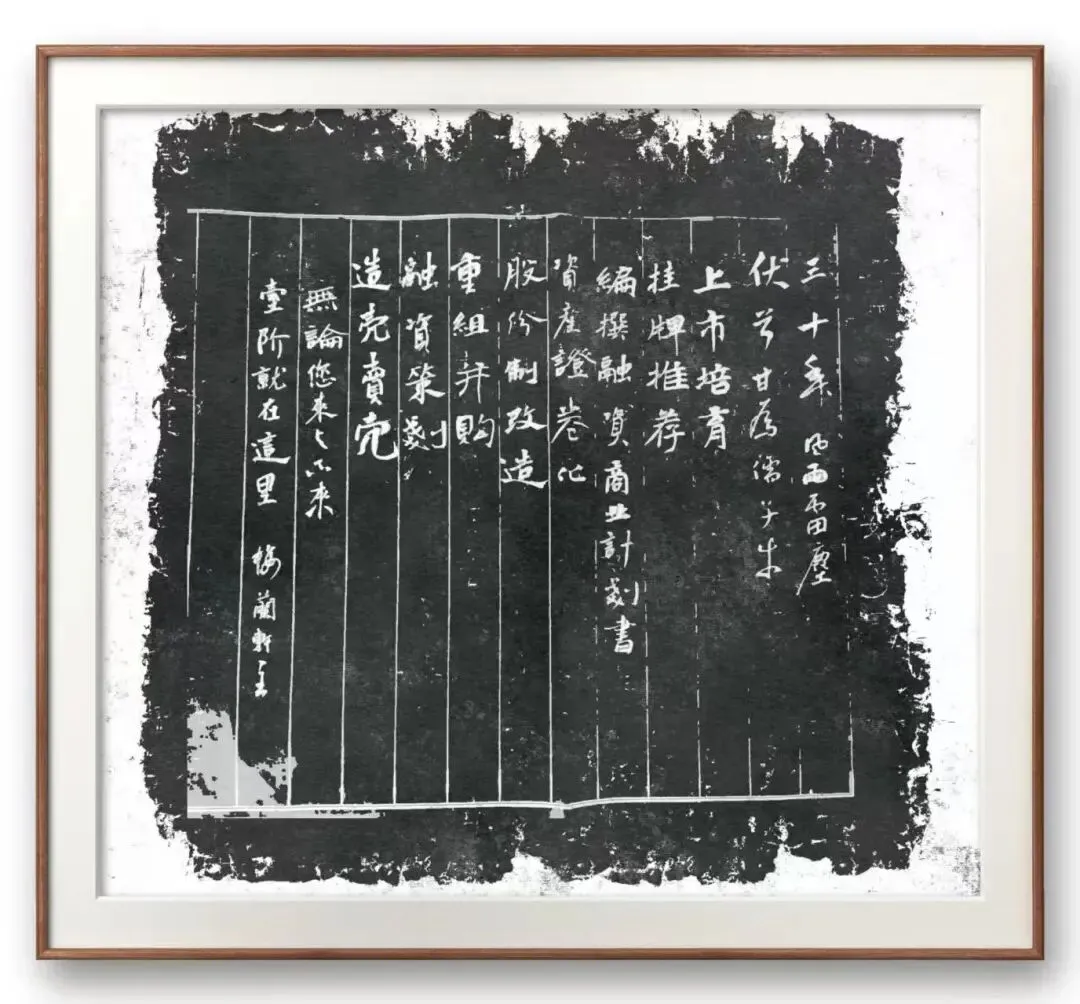 三十年 風雨雷塵
伏首甘為儒子牛
上市培育
挂牌推荐
編撰融資商业計劃書
資産證卷化
股份制改造
重組并購
融資策劃
造壳賣壳
無論您来与不来
臺阶就在這里 梅蘭軒主